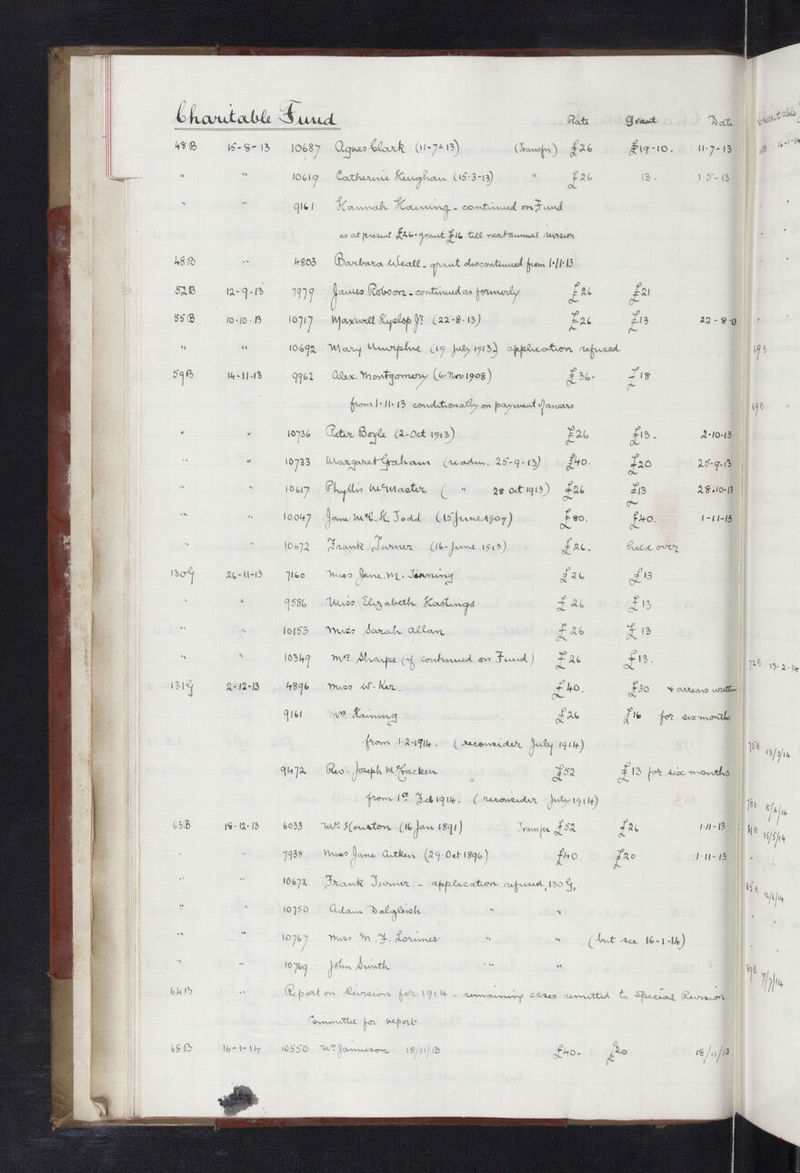 Charitable Fund Rate Grant Date
48B 15-8-13 10687 Agnes Clark (11-7-13) (Transfr) £26 £19-10. 11-7-13
" " 10619 Catherine Keughan (15-3-13) " £26 13- 1-5-13
" " 9161 Hannah Haining - continued on Fund
as at present £26-grant £16 till next annual revision
48B " 4803 Barbara Weall - grant discontinued from 1.11.13
52B 12-9-13 7979 James Robson - continued as formerly £26 £21
55B 10.10.13 10717 Maxwell Hyslop Jr. (22-8-13) £26 £13 22-8-13
" " 10692 Mary Murphie (19 July 1913) application refused
59B 14-11-13 9962 Alex. Montgomery (6. Nov 1908) £36- £18
from 1.11.13 conditionally on payment of arrears
" " 10736 Peter Boyle (2-Oct 1913) £26 £13. 2-10-13
" " 10733 Margaret Graham (readm. 25-9-13) £40. £20 25-9-13
" " 10617 Phyllis McMaster ( " 28 Oct 1913) £26 £13 28.10-13
" " 10047 Jane McC. K. Todd (15 June 1907) £80. £40. 1-11-13
" " 10672 Frank Turner (16-June 1913) £26. held over
130G 26-11-13 7160 Miss Jane M. £26 £13
" " 9586 Miss Elizabeth Hastings £26 £13
" " 10153 Miss Sarah Allan £26 £13
" " 10349 Mrs. Sharpe (if continued on Fund) £26 £13.
131G 2-12-13 4896 Miss W. Ker. £40. £30 & arrears written
9161 Mrs Haining £26 £16 for six months
from 1.2-1914. (reconsider July 1914)
9472 Rev. Joseph McCracken £52 £13 for six months
from 1st Feb 1914. (reconsider July 1914)
63B 18.12.13 6033 Wm. Houston (16 Jan 1891) Transfer £52 £26 1.11-13
" " 7938 Miss Jane Aitken (29. Oct 1896) £40 £20 1.11-13
" " 10672 Frank Turner - application refused, 130G,
" " 10750 Adam Dalgleish " "
" " 10767 Miss M. J. Lorimer " " (but see 16-1-14)
" " 10769 John Smith " "
64B " Report on Revision for 1914 - remaining cases remitted to Special Revision
Committee for report
68B 16-1-14 10550 Wm. Jamieson 18/11/13 £40- £20 18/11/13
Charitable
16-1-14
728 13-2-14
758 13/3/14
788 8/4/14
818 15/5/14
858
898 9/7/14